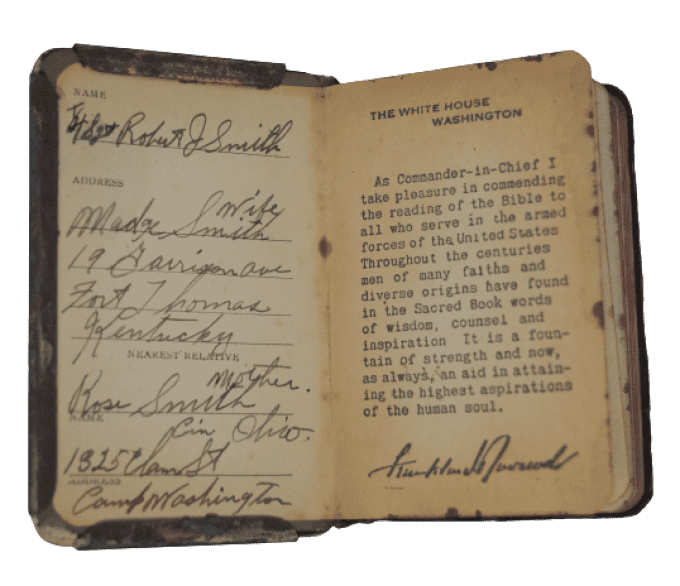 NAME
T/Sgt Robert J Smith
ADDRESS
Wife
Madge Smith
19 Garrison ave
Fort Thomas
Kentucky
NEAREST RELATIVE
Mother.
Rose Smith
NAME
Cin Ohio.
1325 Elam St
ADDRESS
Camp Washington
THE WHITE HOUSE
WASHINGTON
As Commander-in-Chief I
take pleasure in commending
the reading of the Bible to
all who serve in the armed
forces of the United States
Throughout the centuries
men of many faiths and
diverse origins have found
in the Sacred Book words
of wisdom, counsel and
inspiration It is a foun-
tain of strength and now,
as always, an aid in attain-
ing the highest aspirations
of the human soul.
Franklin D Roosevelt